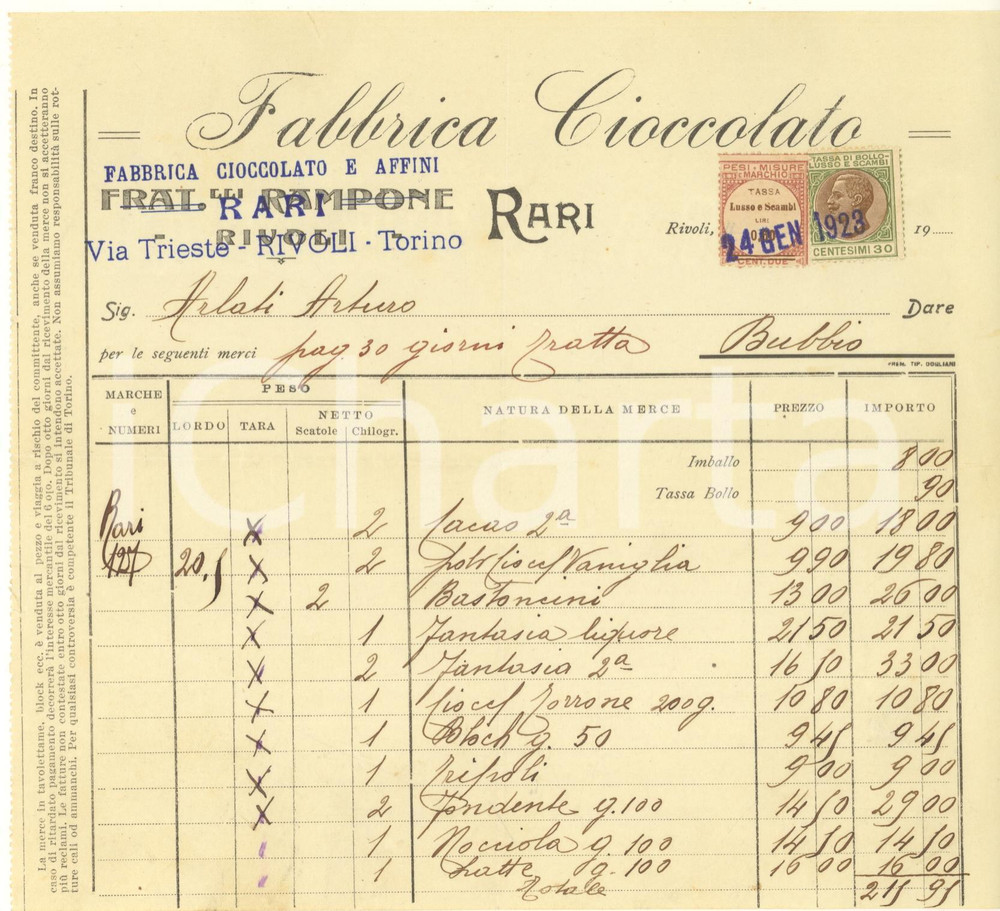 Fabbrica Cioccolato
FABBRICA CIOCCOLATO E AFFINI
FRAT.LLI RAMPONE
RARI
RARI
RIVOLI
Via Trieste - RIVOLI - Torino
PESI E MISURE E MARCHIO
TASSA
Lusso e Scambi
LIRE
CENT. DUE
TASSA DI BOLLO
LUSSO E SCAMBI
CENTESIMI 30
Rivoli, 24 GEN 1923 19
Sig. Arlati Arturo Dare
per le seguenti merci pag 30 giorni Tratta Bubbio
PREM. TIP. DOGLIANI
MARCHE e NUMERI PESO NATURA DELLA MERCE PREZZO IMPORTO
LORDO TARA NETTO
Scatole Chilogr.
Imballo 8 00
Tassa Bollo 90
Rari X 2 Cacao 2a 9 00 18 00
127 20,5 X 2 Vaniglia 9 90 19 80
X 2 Bastoncini 13 00 26 00
X 1 Fantasia liquore 21 50 21 50
X 2 Fantasia 2a 16 50 33 00
X 1 Torrone 200 g. 10 80 10 80
X 1 Block g. 50 9 45 9 45
X 1 Tripoli 9 00 9 00
X 2 Fondente g. 100 14 50 29 00
1 Nocciola g. 100 14 50 14 50
1 Latte g. 100 16 00 16 00
Totale 215 95
La merce in tavolettame, block ecc. è venduta al pezzo e viaggia a rischio del committente, anche se venduta franco destino. In
caso di ritardato pagamento decorrerà l'interesse mercantile del 6 0|0. Dopo otto giorni dal ricevimento della merce non si accetteranno
più reclami. Le fatture non contestate entro otto giorni dal ricevimento si intendono accettate. Non assumiamo responsabilità sulle rot-
ture cali od ammanchi. Per qualsiasi controversia è competente il Tribunale di Torino.
iCharta